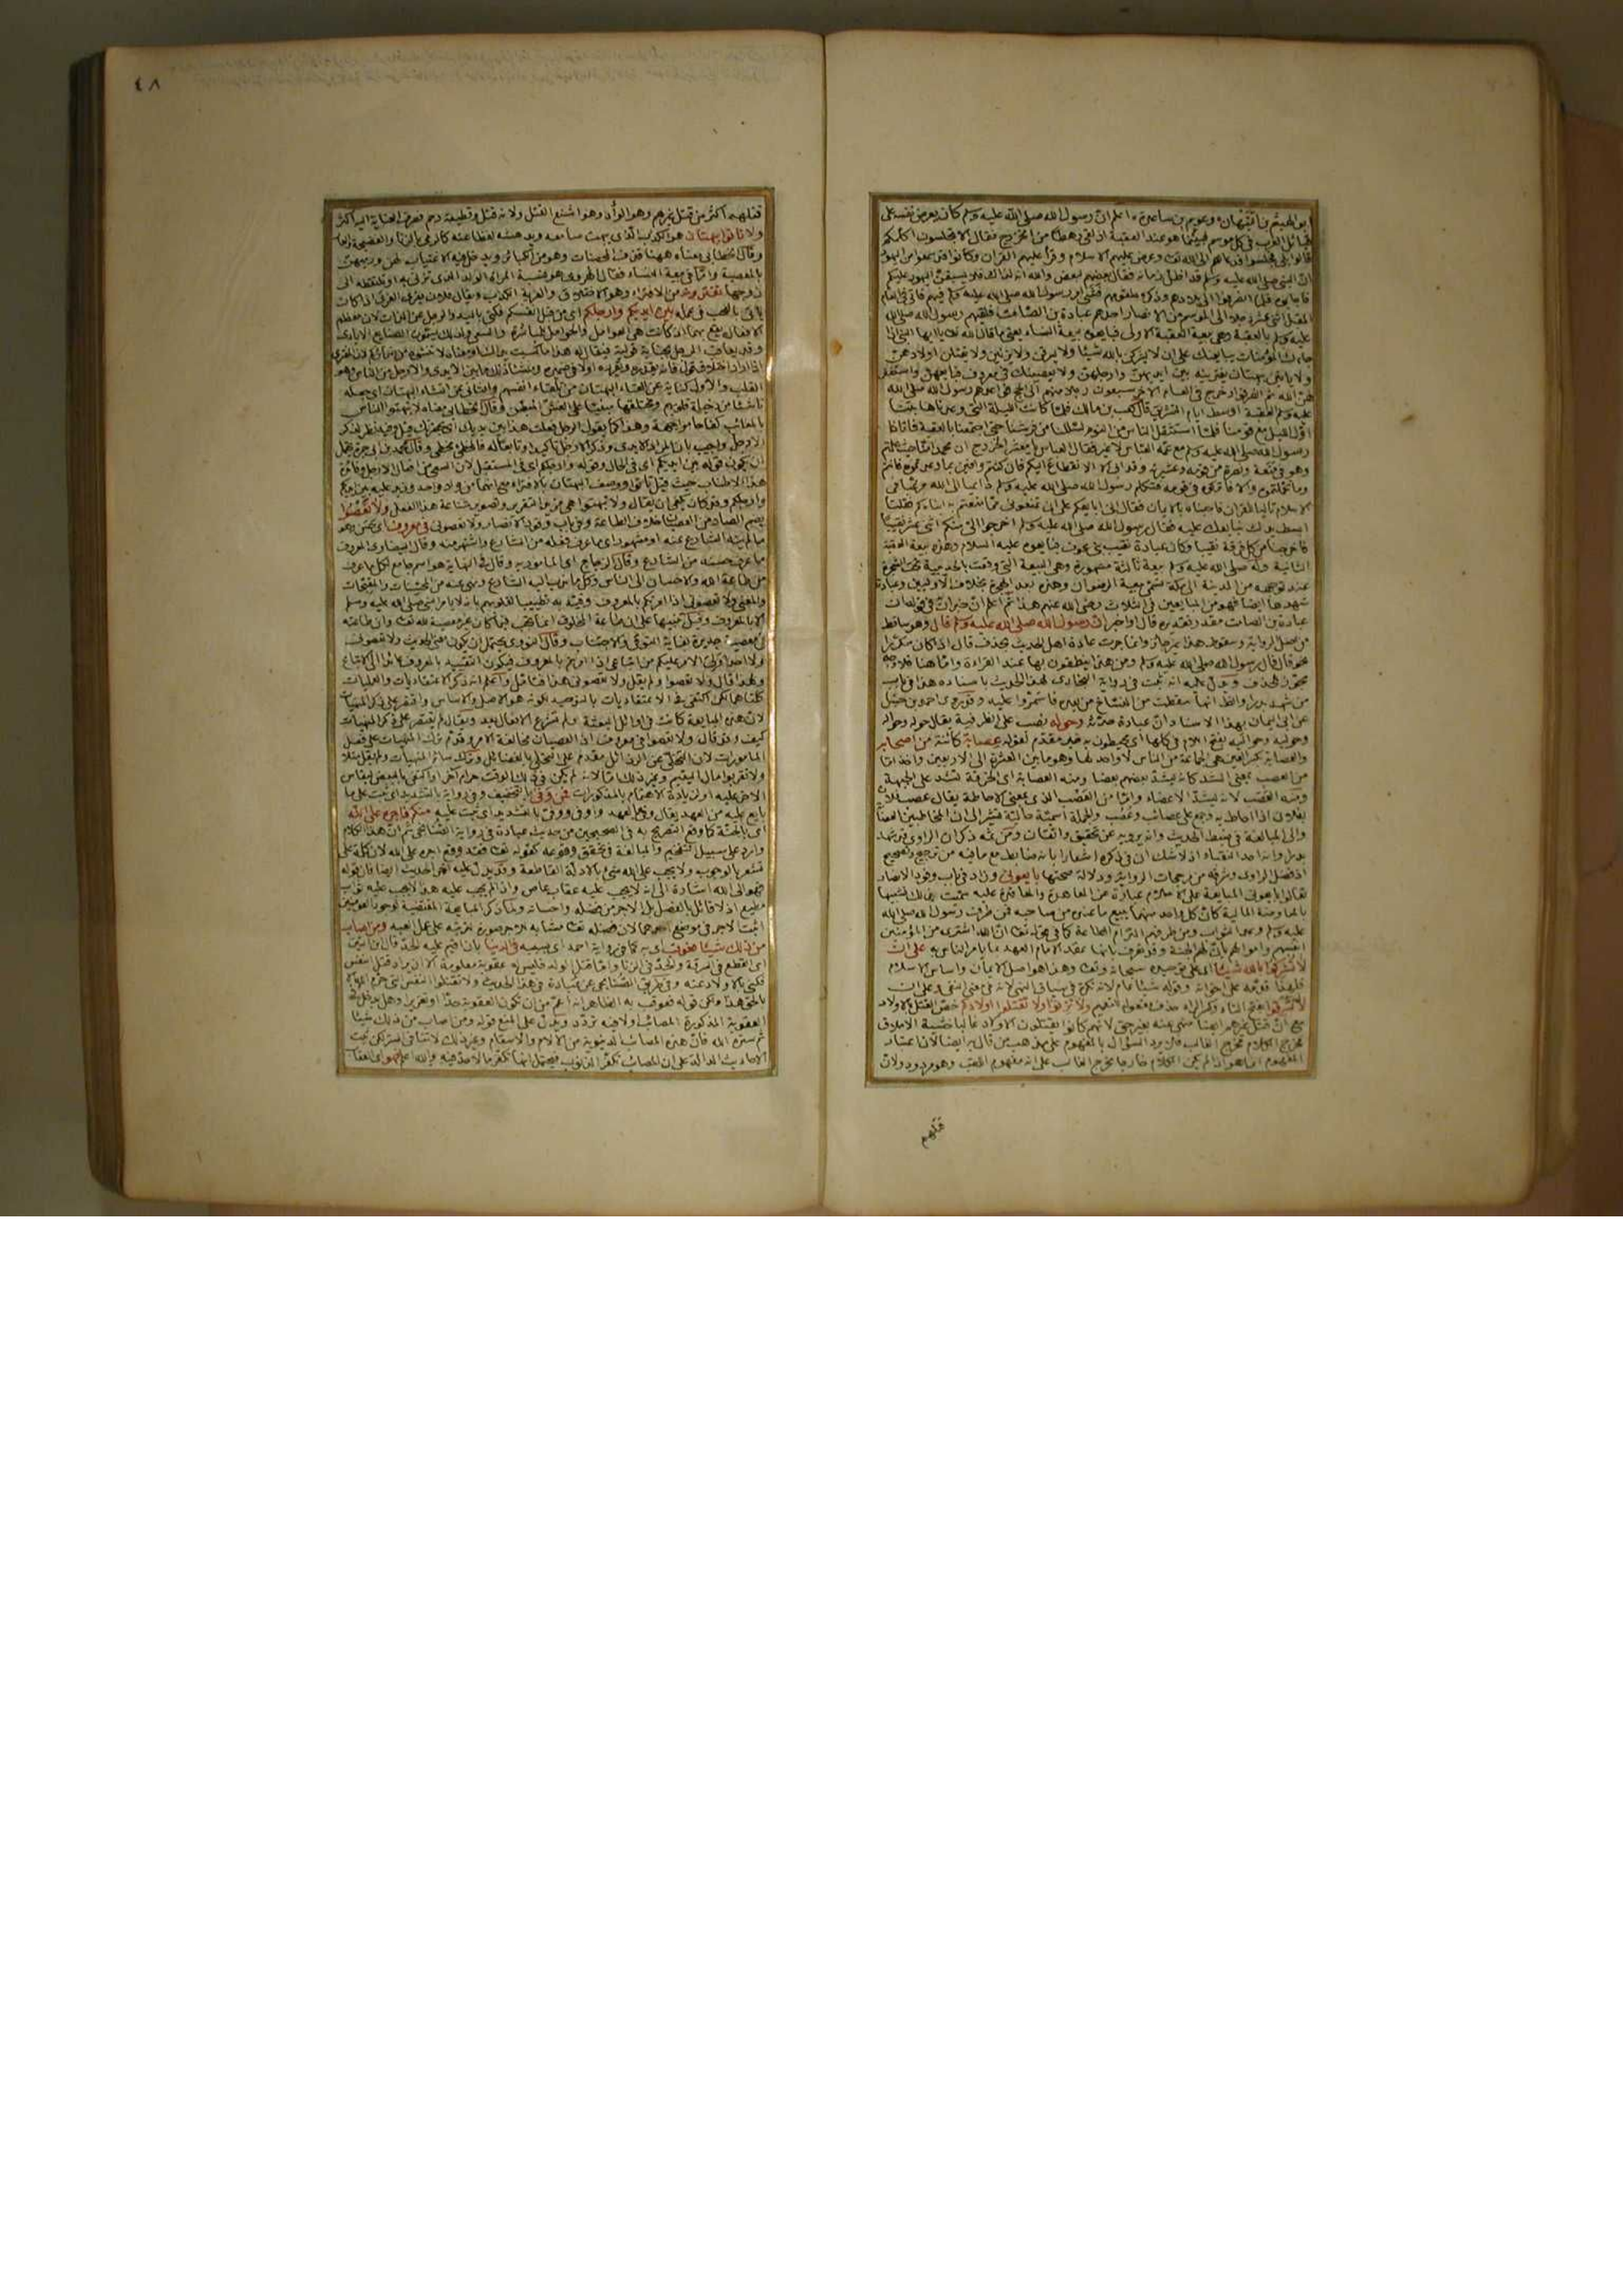 ابو الهيثم بن التيهان وعويم بن ساعدة اعلم ان رسول الله صلى الله عليه وسلم كان يعرض نفسه على
قبائل العرب في كل موسم فبينما هو عند العقبة اذ لقي رهطا من الخزرج فقال الا تجلسون اكلمكم
قالوا بلى فجلسوا فدعاهم الى الله تعالى وعرض عليهم الاسلام وقرأ عليهم القرآن وكانوا قد سمعوا من اليهود
ان النبي صلى الله عليه وسلم قد اظل زمانه فقال بعضهم لبعض والله انه لذاك فلا يسبقن اليهود عليكم
فاجابوه فلما انصرفوا الى بلادهم وذكروه لقومهم فشى امر رسول الله صلى الله عليه وسلم فيهم فاتى في العام
المقبل اثنى عشر رجلا الى الموسم من الانصار احدهم عبادة بن الصامت فلقيهم رسول الله صلى الله
عليه وسلم بالعقبة وهي بيعة العقبة الاولى فبايعوه بيعة النساء يعني ما قال الله تعالى يا ايها النبي اذا
جاءك المؤمنات يبايعنك على ان لا يشركن بالله شيئا ولا يسرقن ولا يزنين ولا يقتلن اولادهن
ولا يأتين ببهتان يفترينه بين ايديهن وارجلهن ولا يعصينك في معروف فبايعهن واستغفر
لهن الله ثم انصرفوا وخرج في العام الآخر سبعون رجلا منهم الى الحج فواعدهم رسول الله صلى الله
عليه وسلم العقبة اوسط ايام التشريق قال كعب بن مالك فلما كانت الليلة التي وعدنا فيها بتنا
اول الليل مع قومنا فلما استثقل الناس من النوم تسللنا من فرشنا حتى اجتمعنا بالعقبة فاتانا
رسول الله صلى الله عليه وسلم مع عمه العباس لا غير فقال العباس يا معشر الخزرج ان محمدا منا حيث علمتم
وهو في منعة ونصرة من قومه وعشيرته وقد ابى الا الانقطاع اليكم فان كنتم وافين بما وعدتموه فانتم
وما تحملتم والا فاتركوه في قومه فتكلم رسول الله صلى الله عليه وسلم داعيا الى الله مرغبا في
الاسلام تاليا للقرآن فاجبناه بالايمان فقال اني ابايعكم على ان تمنعوني مما منعتم به ابناءكم فقلنا
ابسط يدك نبايعك عليه فقال رسول الله صلى الله عليه وسلم اخرجوا الي منكم اثنى عشر نقيبا
فاخرجنا من كل فرقة نقيبا وكان عبادة نقيب بني عوف فبايعوه عليه السلام وهذه بيعة العقبة
الثانية وله صلى الله عليه وسلم بيعة ثالثة مشهورة وهي البيعة التي وقعت بالحديبية تحت الشجرة
عند توجهه من المدينة الى مكة تسمى بيعة الرضوان وهذه بعد الهجرة بخلاف الاوليين وعبادة
شهدها ايضا فهو من المبايعين في الثلاث رضي الله عنهم هذا ثم اعلم ان خبر ان في قوله ان
عبادة بن الصامت مقدر تقديره قال او اخبر ان رسول الله صلى الله عليه وسلم قال وهو ساقط
من اصل الرواية وسقوط هذا غير جائز وانما جرت عادة اهل الحديث بحذف قال اذا كان مكررا
نحو قال قال رسول الله صلى الله عليه وسلم ومن هذا ينطقون بها عند القراءة واما هنا فلا وجه
لجواز الحذف ويدل عليه انه ثبت في رواية البخاري لهذا الحديث باسناده هذا في باب
من شهد بدرا والظاهر انها سقطت من النساخ من بعده فاستمروا عليه وقد روى احمد بن حنبل
عن ابي اليمان بهذا الاسناد ان عبادة حدثه وحوله نصب على الظرفية يقال حوله وحواله
وحوليه وحواليه بفتح اللام في كلها اي يحيطون به خبر مقدم لقوله عصابة كائنة من اصحابه
والعصابة بكسر العين هي الجماعة من الناس لا واحد لها وهو ما بين العشرة الى الاربعين واخذ اما
من العصب بمعنى الشد كانه يشد بعضهم بعضا ومنه العصابة اي الخرقة تشد على الجبهة
ومنه العصب لانه يشد الاعضاء واما من العصب الذي بمعنى الاحاطة يقال عصب فلان
بفلان اذا احاط به وتجمع على عصائب وعصب والجملة اسمية حالية
والى المبالغة في ضبط الحديث وانه يرويه عن تحقيق واتقان ومن ثمه ذكر ان الراوي قد شهد
بدرا وانه احد النقباء اذ لا شك ان في ذكره اشعارا بانه ضابط مع ما فيه من ترجيح وتصحيح
اذ فضل الراوي وشرفه من مرجحات الرواية ودلالة صحتها بايعوني وزاد في باب وفود الانصار
تعالوا بايعوني المبايعة على الاسلام عبارة عن المعاهدة والمعاقدة عليه سميت بذلك تشبيها
بالمعاوضة المالية كأن كل واحد منهما يبيع ما عنده من صاحبه فمن طرف رسول الله صلى الله
عليه وسلم وعد الثواب ومن طرفهم التزام الطاعة كما في قوله تعالى ان الله اشترى من المؤمنين
انفسهم واموالهم بان لهم الجنة وقد تعرف بانها عقد الامام العهد بما يأمر الناس به على ان
لا تشركوا بالله شيئا اي على توحيده سبحانه وتعالى وهذا هو اصل الايمان واساس الاسلام
فلهذا قدمه على اخواته وقوله شيئا عام لانه نكرة في سياق النهي لانه في معنى النفي وعلى ان
لا تسرقوا بفتح التاء وكسر الراء حذف مفعوله للتعميم ولا تزنوا ولا تقتلوا اولادكم خص القتل بالاولاد
مع ان قتل غيرهم ايضا منهي عنه بغير حق لانهم كانوا يقتلون الاولاد غالبا خشية الاملاق
فخرج الكلام مخرج الغالب فلا يرد السؤال بالمفهوم على مذهب من قال به ايضا لان اعتبار
المفهوم انما هو اذا لم يكن الكلام خارجا مخرج الغالب على انه مفهوم اللقب وهو مردود ولان
قتلهم
٤٨
قتلهم اكثر من قتل غيرهم وهو الوأد وهو اشنع القتل ولانه قتل وقطيعة رحم فصرف العناية اليه اكثر
ولا تأتوا ببهتان هو الكذب الذي يبهت سامعه ويدهشه لفظاعته كالرمي بالزنا والفضيحة والعار
وقال الخطابي معناه ههنا قذف المحصنات وهو من الكبائر ويدخل فيه الاغتياب لهن ورميهن
بالمعصية واما في بيعة النساء فقال الهروي هو نسبة المرأة الولد الذي تزني به او تلتقطه الى
زوجها تفترونه من الافتراء وهو الاختلاق والفرية الكذب ويقال فلان يفري الفري اذا كان
يأتي بالعجب في عمله بين ايديكم وارجلكم اي من قبل انفسكم فكنى باليد والرجل عن الذات لان معظم
الافعال يقع بهما اذ كانت هي العوامل والحوامل للمباشرة والسعي ولذلك يسمون الصنايع الايادي
وقد يعاقب الرجل بجناية قولية فيقال له هذا ما كسبت يداك
القلب والاول كناية عن القاء البهتان من تلقاء انفسهم والثاني عن انشاء البهتان
ناشئا من دخيلة قلوبهم وقال الخطابي معناه لا تبهتوا الناس
بالمعائب كفاحا مواجهة وهذا كما يقول الرجل فعلت هذا بين يديك اي بحضرتك
الارجل واجيب بان المراد الايدي وذكر الارجل تأكيدا
ان يكون قوله بين ايديكم اي في الحال وقوله وارجلكم اي في المستقبل لان السعي من افعال الارجل وفائدة
هذا الاطناب حيث قيل تأتوا ووصف البهتان بالافتراء
وارجلكم وقد كان يكفي ان يقال ولا تبهتوا هي مزيد التقرير وتصوير شناعة هذا الفعل ولا تعصوا
بضم الصاد من العصيان خلاف الطاعة وفي باب وفود الانصار ولا تعصوني في معروف اي حسن وهو
ما لم ينه الشارع عنه او مشهور اي ما عرف فعله من الشارع واشتهر منه وقال البيضاوي المعروف
ما عرف حسنه من الشارع وقال الزجاج اي المأمور به وقال في النهاية هو اسم جامع لكل ما عرف
من طاعة الله والاحسان الى الناس وكل ما ندب اليه الشارع ونهى عنه من المحسنات والمقبحات
والمعنى ولا تعصوني اذا امرتكم بالمعروف وقيد به تطييبا لقلوبهم بانه لا يأمر النبي صلى الله عليه وسلم
الا بالمعروف وقيل تنبيها على ان طاعة المخلوق انما تجب فيما كان غير معصية لله تعالى
في معصية جديرة بغاية التوقي والاجتناب وقال النووي يحتمل ان يكون معنى الحديث ولا تعصوني
ولا احدا ولي الامر عليكم من اتباعي اذا امرتم بالمعروف فيكون التقييد بالمعروف عائدا الى الاتباع
ولهذا قال ولا تعصوا ولم يقل ولا تعصوني هذا فتأمل واعلم انه ذكر الاعتقاديات والعمليات
كلتاهما لكن اكتفى في الاعتقاديات بالتوحيد لكونه هو الاصل والاساس واقتصر على ذكر المنهيات
لان هذه المبايعة كانت في اوائل البعثة ولم تشرع الافعال بعد ويقال لم يقتصر على ذكر المنهيات
كيف وقد قال ولا تعصوا في معروف اذ العصيان مخالفة الامر وقدم ترك المنهيات على فعل
المأمورات لان التخلي عن الرذائل مقدم على التحلي بالفضائل وترك سائر المنهيات ولم يقل مثلا
ولا تقربوا مال اليتيم وغير ذلك اما لانه لم يكن في ذلك الوقت حرام آخر او اكتفى بالبعض ليقاس
الآخر عليه او لزيادة الاهتمام بالمذكورات فمن وفى بالتخفيف وفي رواية بالتشديد اي ثبت على ما
بايع عليه من العهد يقال وفى بالعهد واوفى ووفى بالتشديد اي ثبت عليه منكم فاجره على الله
اي بالجنة كما وقع التصريح به في الصحيحين من حديث عبادة في رواية الصنابحي ثم ان هذا الكلام
وارد على سبيل التفخيم والمبالغة في تحقق وقوعه كقوله تعالى فقد وقع اجره على الله لان كلمة على
تشعر بالوجوب ولا يجب على الله شيء بالادلة القاطعة وقد يدل عليه آخر الحديث ايضا فان قوله
فهو الى الله اشارة الى انه لا يجب عليه عقاب عاص واذا لم يجب عليه هذا لا يجب عليه ثواب
مطيع اذ لا قائل بالفصل بل الاجر من فضله واحسانه ولما ذكر المبايعة المقتضية لوجود العوضين
اثبت الاجر في موضع احدهما لان فضله تعالى مشابه الاجر صورة لترتبه على عمل العبد ومن اصاب
من ذلك شيئا فعوقب اي به كما في رواية احمد اي بسببه في الدنيا بان اقيم عليه الحد قال ابن التين
اي القطع في السرقة والحد في الزنا واما قتل الولد فليس له عقوبة معلومة الا ان يراد قتل النفس
فكنى بالاولاد عنه وفي طريق الصنابحي عن عبادة في هذا الحديث ولا تقتلوا النفس التي حرم الله الا
بالحق هذا ولكن قوله فعوقب به الظاهر انه اعم من ان تكون العقوبة حدا او تعزيرا وهل يدخل في
العقوبة المذكورة المصائب اولا فيه تردد ويدل على المنع قوله ومن اصاب من ذلك شيئا
ثم ستره الله فان هذه المصائب الدنيوية من الآلام والاسقام وغير ذلك لا تنافي الستر لكن ثبت
الاحاديث الدالة على ان المصائب تكفر الذنوب فيحتمل انها تكفر ما لا حد فيه والله اعلم فهو اي العقاب